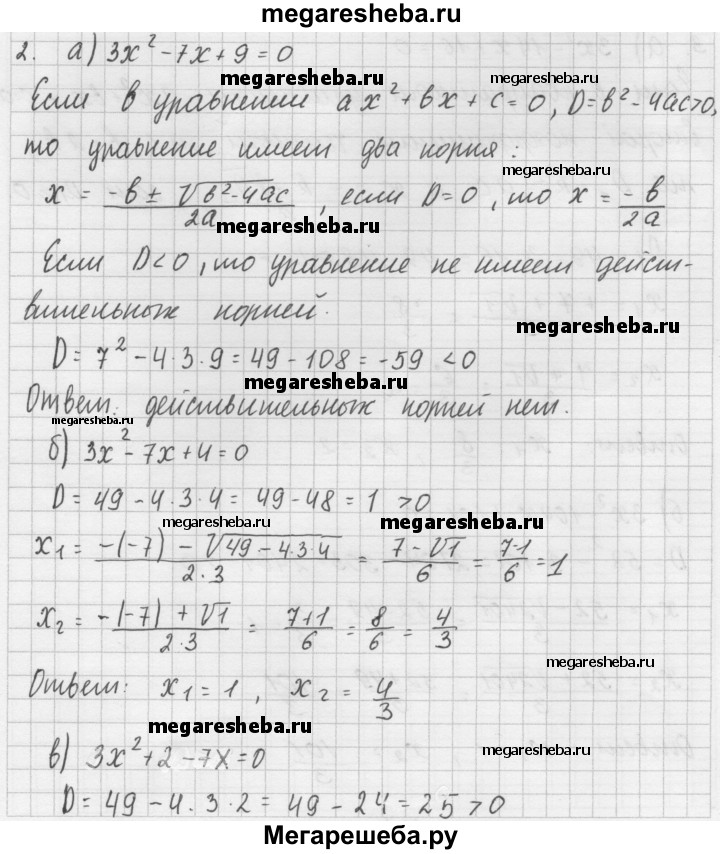 megaresheba.ru
2. а) 3x² - 7x + 9 = 0
megaresheba.ru megaresheba.ru
Если в уравнении ax² + bx + c = 0, D = b² - 4ac > 0,
то уравнение имеет два корня:
megaresheba.ru
x = (-b ± √(b² - 4ac))/2a, если D = 0, то x = -b/2a
megaresheba.ru
Если D < 0, то уравнение не имеет дейст-
вительных корней.
megaresheba.ru
D = 7² - 4·3·9 = 49 - 108 = -59 < 0
megaresheba.ru
Ответ: действительных корней нет.
megaresheba.ru
б) 3x² - 7x + 4 = 0
D = 49 - 4·3·4 = 49 - 48 = 1 > 0
megaresheba.ru megaresheba.ru
x₁ = (-(-7) - √(49 - 4·3·4))/(2·3) = (7 - √1)/6 = (7-1)/6 = 1
x₂ = (-(-7) + √1)/(2·3) = (7+1)/6 = 8/6 = 4/3
megaresheba.ru
Ответ: x₁ = 1, x₂ = 4/3
megaresheba.ru
в) 3x² + 2 - 7x = 0
megaresheba.ru
D = 49 - 4·3·2 = 49 - 24 = 25 > 0
Мегарешеба.ру